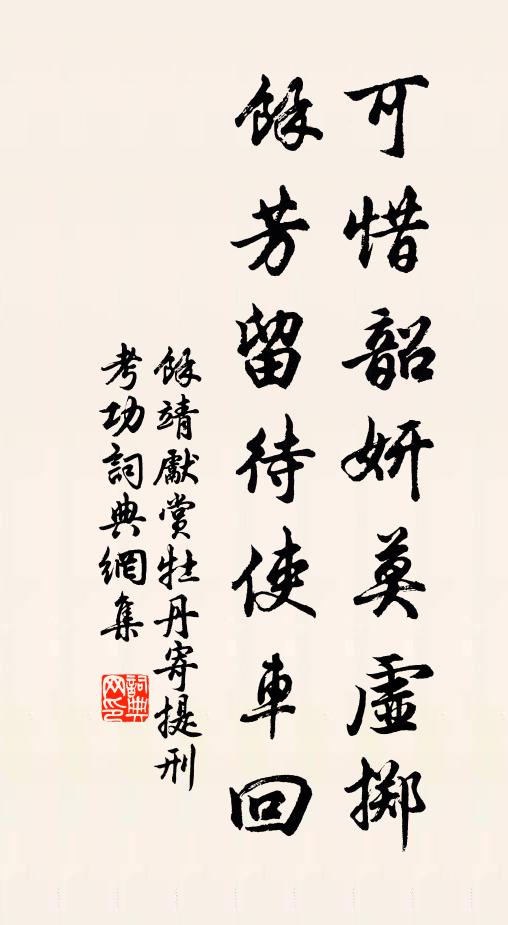 可惜韶妍莫虛擲
餘芳留待使車回
餘靖獻賞牡丹寄提刑
考功詞典網集
詞典网印